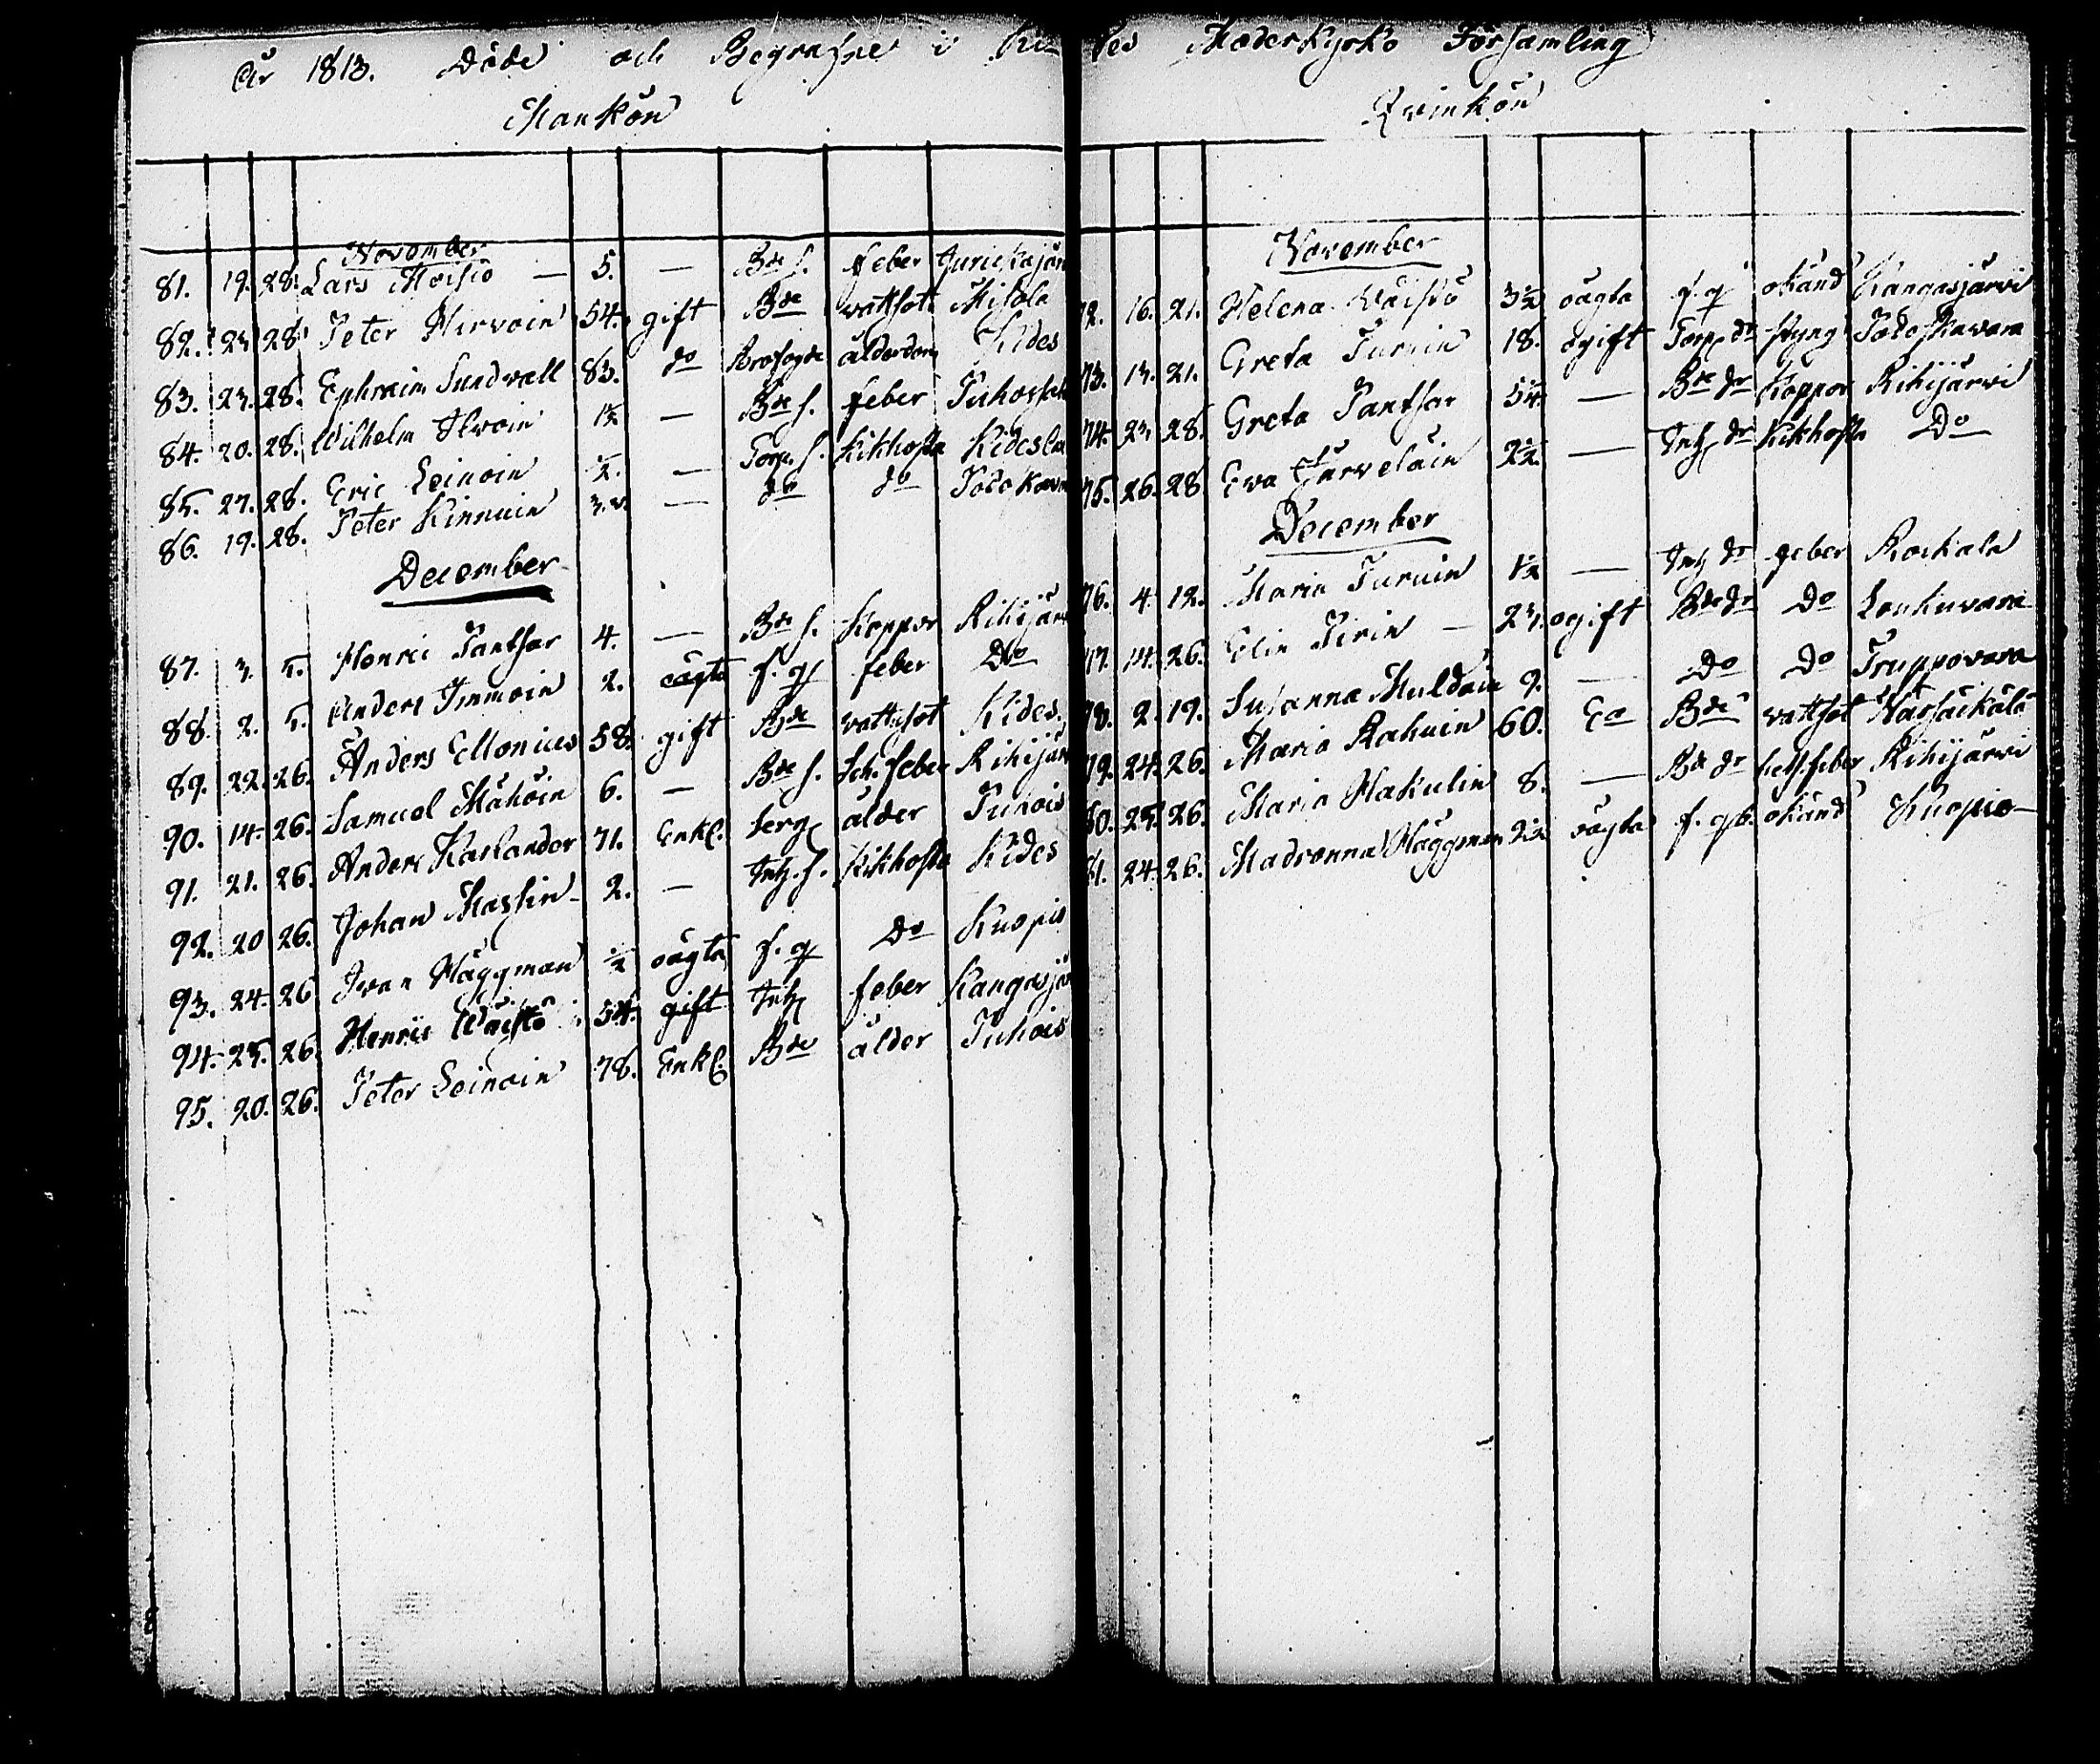 År 1813. Döde och Begrafne i Ki
Mankön
November
81. 19. 28. Lars Moisio — 5. — Bde s. feber Jurickajär
82. 23. 28. Peter Hirvoin 54. gift Bde vattsot Misola
83. 23. 28. Ephraim Sundvall 83. do ålderdom Kides
84. 20. 28. Wilhelm Ilvoin 1½ — Bde s. feber
85. 27. 28. Eric Leinoin ½. — Torp. s. kikhosta Kides
86. 19. 28. Peter Kinnuin 3. v. — do do
December
87. 3. 5. Henric Pantsar 4. — Bde s. Koppor Rihijärv
88. 2. 5. Anders Immoin 2. oägta f. q feber Do
89. 22. 26. Anders Ellonius 58. gift Bde vattusot Kides.
90. 14. 26. Samuel Mähöin 6. — Bde s. feber Rihijär
91. 21. 26. Anders Karlander 71. Enkl. Serg ålder Puhois
92. 20 26. Johan Massin 2. — Inh. s. Kikhosta Kides
93. 24. 26 Ivan Häggman ½ oägta f. q Do Kuopio
94. 25. 26. Henric Wäistö 54. gift Inh feber Kangasjär
95. 20. 26. Peter Leinoin 78. Enkl. Bde ålder Puhois
des Moderkyrko Församling
Qvinkön
November
72. 16. 21. Helena Wäistö 3½ oägta f. q okänd Kangasjärvi
73. 13. 21. Greta Turuin 18. ogift Torp dr styng Potoskavara
74. 23. 28. Greta Pantsar 5½ — Bde dr Koppor Rihijärvi
75. 26. 28 Eva Järveläin 2½. — Inh dr Kikhosta Do
December
76. 4. 12. Maria Turuin 1½ — Inh dr feber Roikala
77. 14. 26. Elin Pirin — 23. ogift Bde dr Do Loukuvara
78. 2. 19. Susanna Muldain 9. — Do Do Truppovara
79. 24. 26. Maria Rahuin 60. Ea Bde vattsot
80. 25. 26. Maria Hakulin 8. — Bde dr feber Rihijärvi
81. 24. 26. Madronna Häggman 2½ oägta f. qb. okänd Kuopio